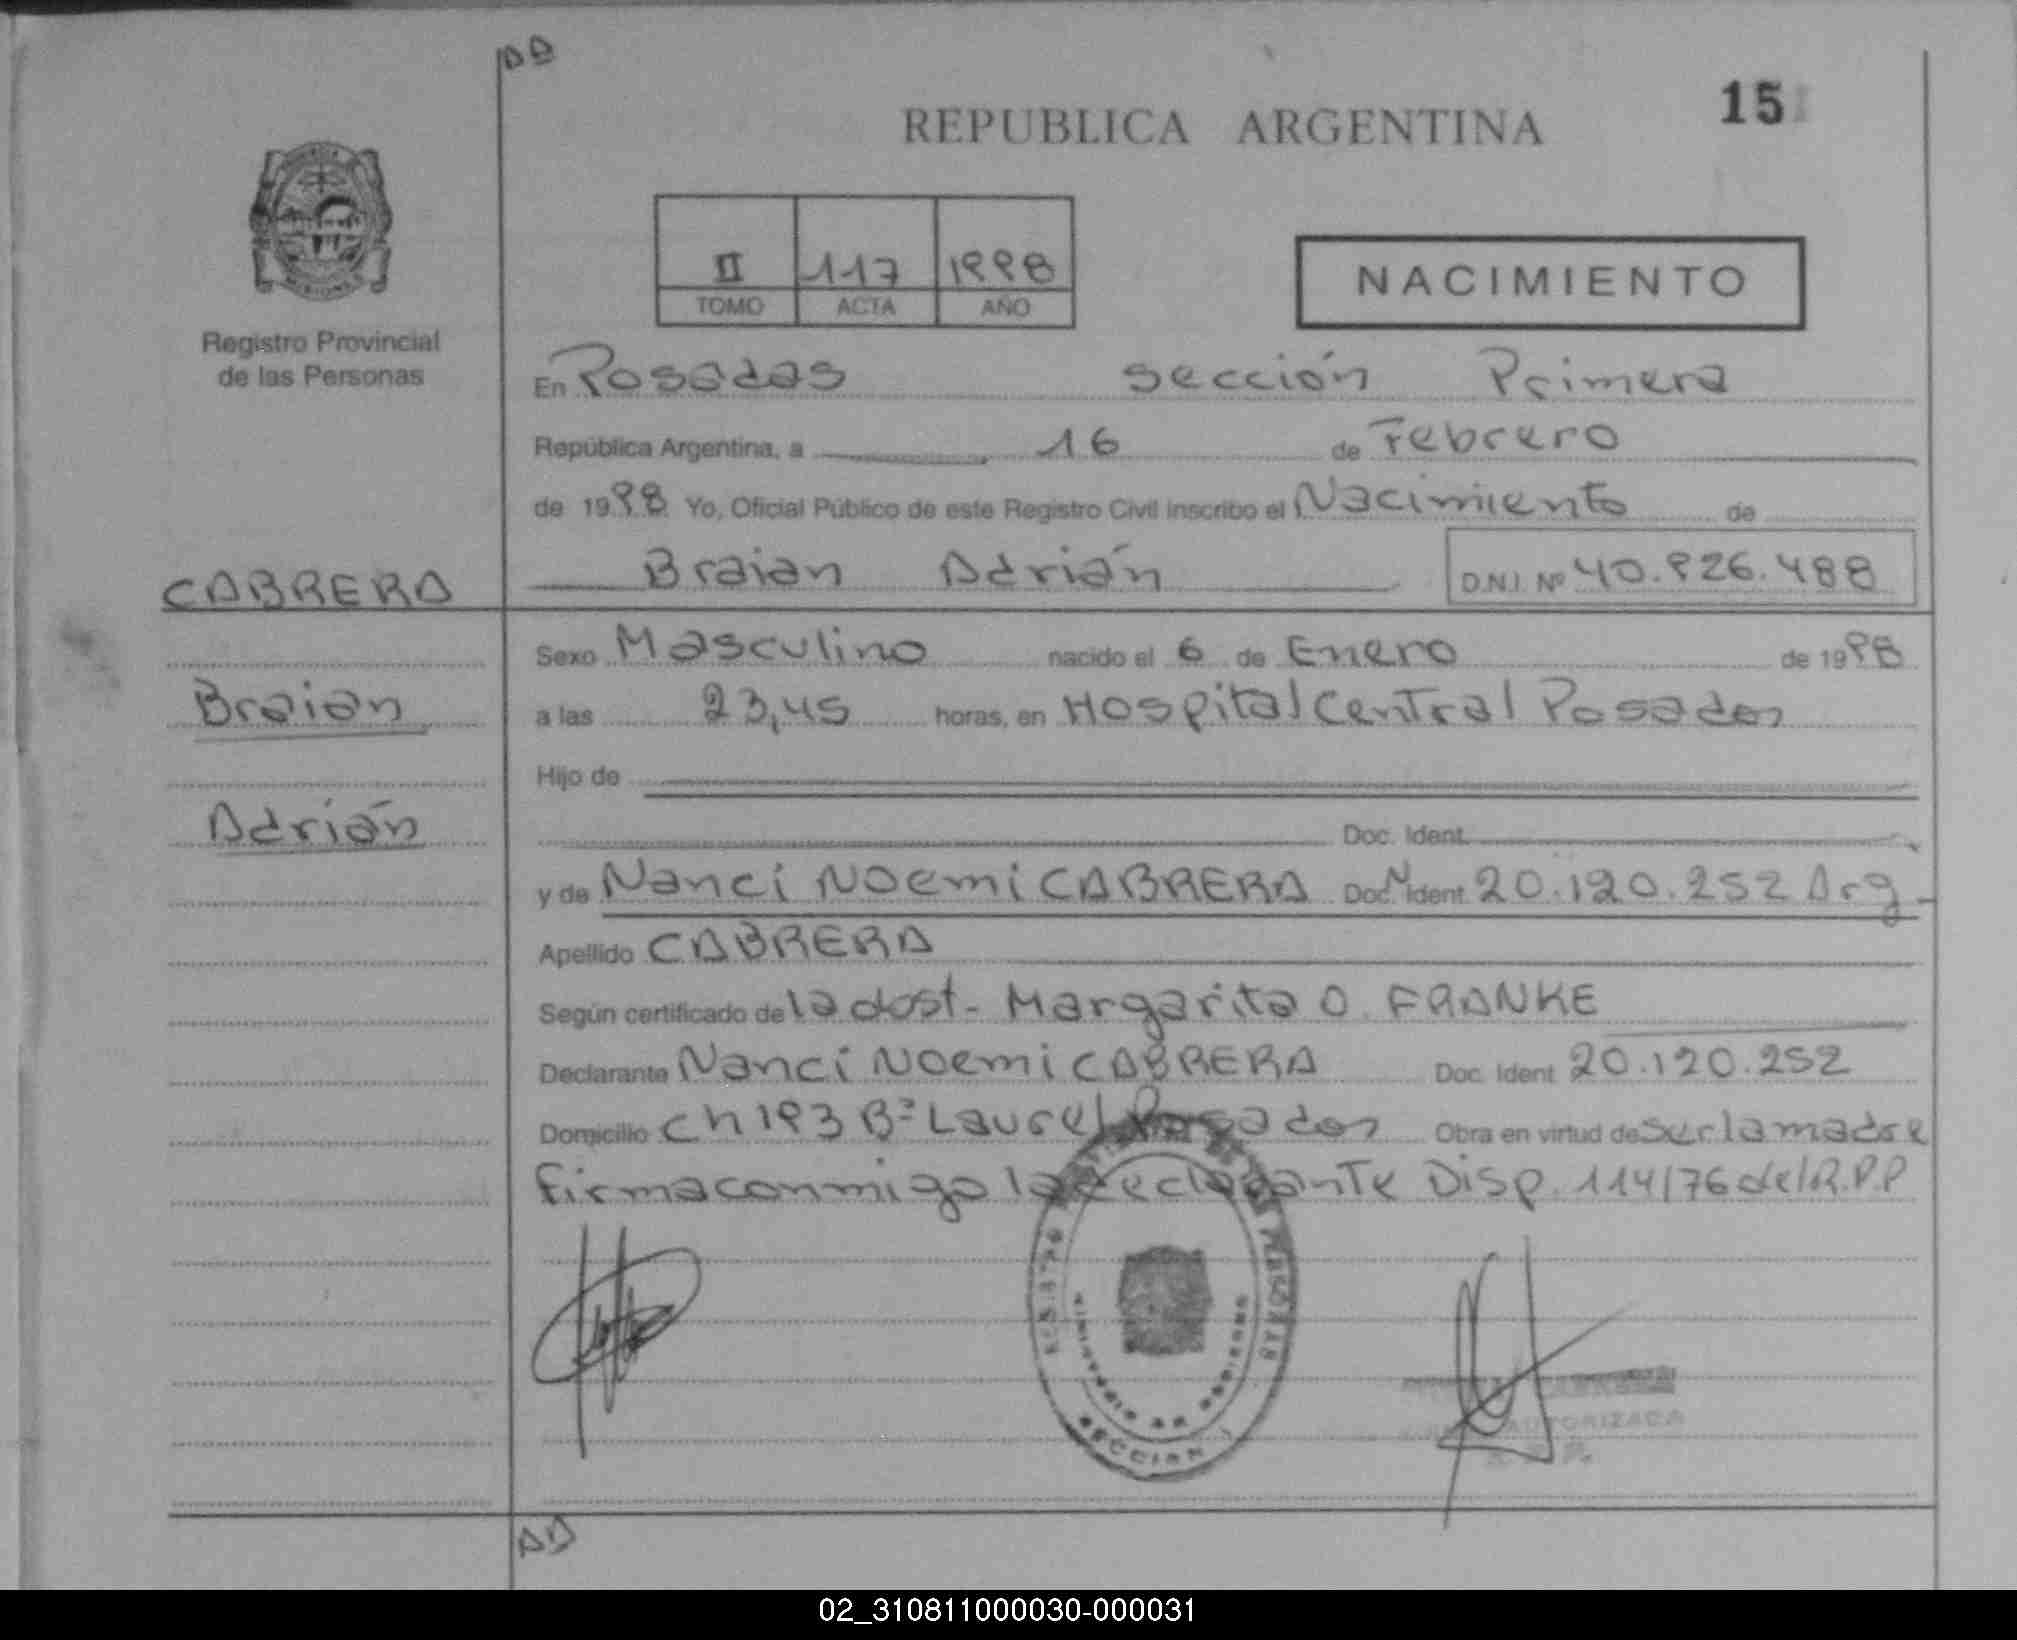 REPUBLICA ARGENTINA
15
II 117 1998
TOMO ACTA AÑO
NACIMIENTO
Registro Provincial
de las Personas
En Posadas sección Primera
República Argentina, a 16 de Febrero
de 1998 Yo, Oficial Público de este Registro Civil inscribo el Nacimiento de
CABRERA
Braian Adrián D.N.I. Nº 40.926.488
Sexo Masculino nacido el 6 de Enero de 1998
Braian
a las 23,45 horas, en Hospital Central Posadas
Hijo de
Adrián
Doc. Ident.
y de Nanci Noemi CABRERA Doc. Ident. 20.120.252 Arg
Apellido CABRERA
Según certificado de la obst- Margarita O. FRANKE
Declarante Nanci Noemi CABRERA Doc. Ident 20.120.252
Domicilio Ch 193 Bº Laurel Posadas Obra en virtud de ser la madre
firma conmigo la declarante Disp. 114/76 del R.P.P
MINISTERIO DE GOBIERNO
SECCION 1
AUTORIZADA
02_310811000030-000031